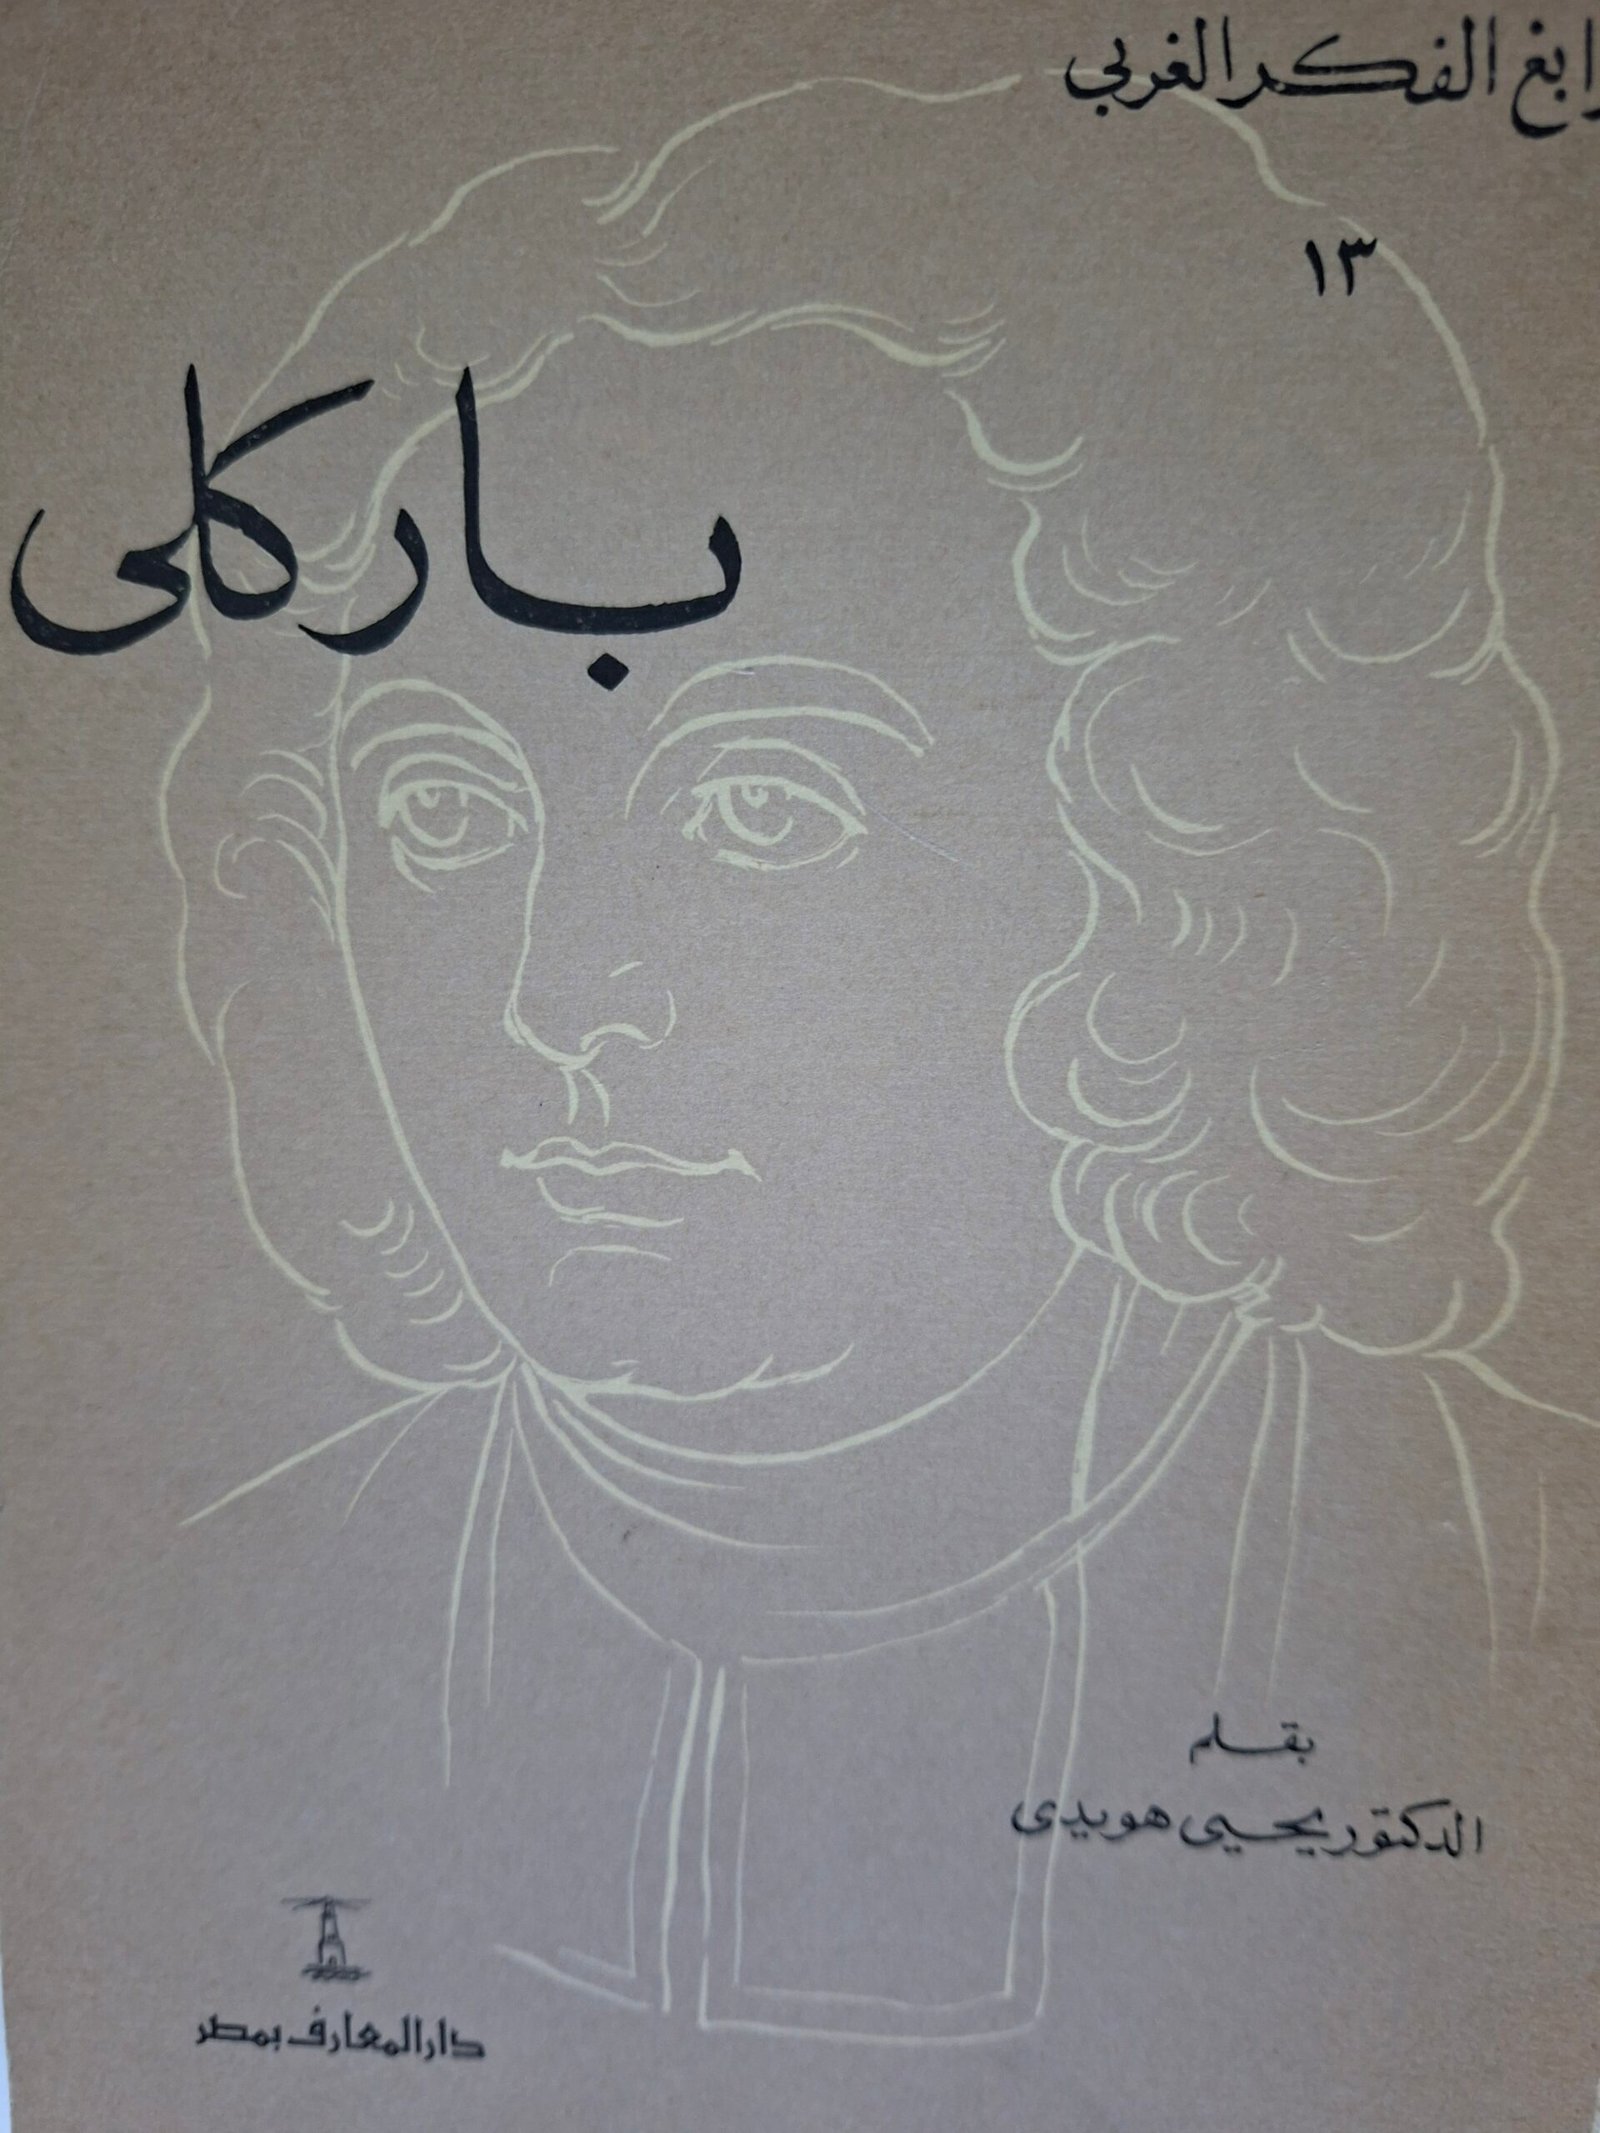 ـوابغ الفكر الغربي
١٣
باركلى
بقلم
الدكتور يحيى هويدى
دار المعارف بمصر